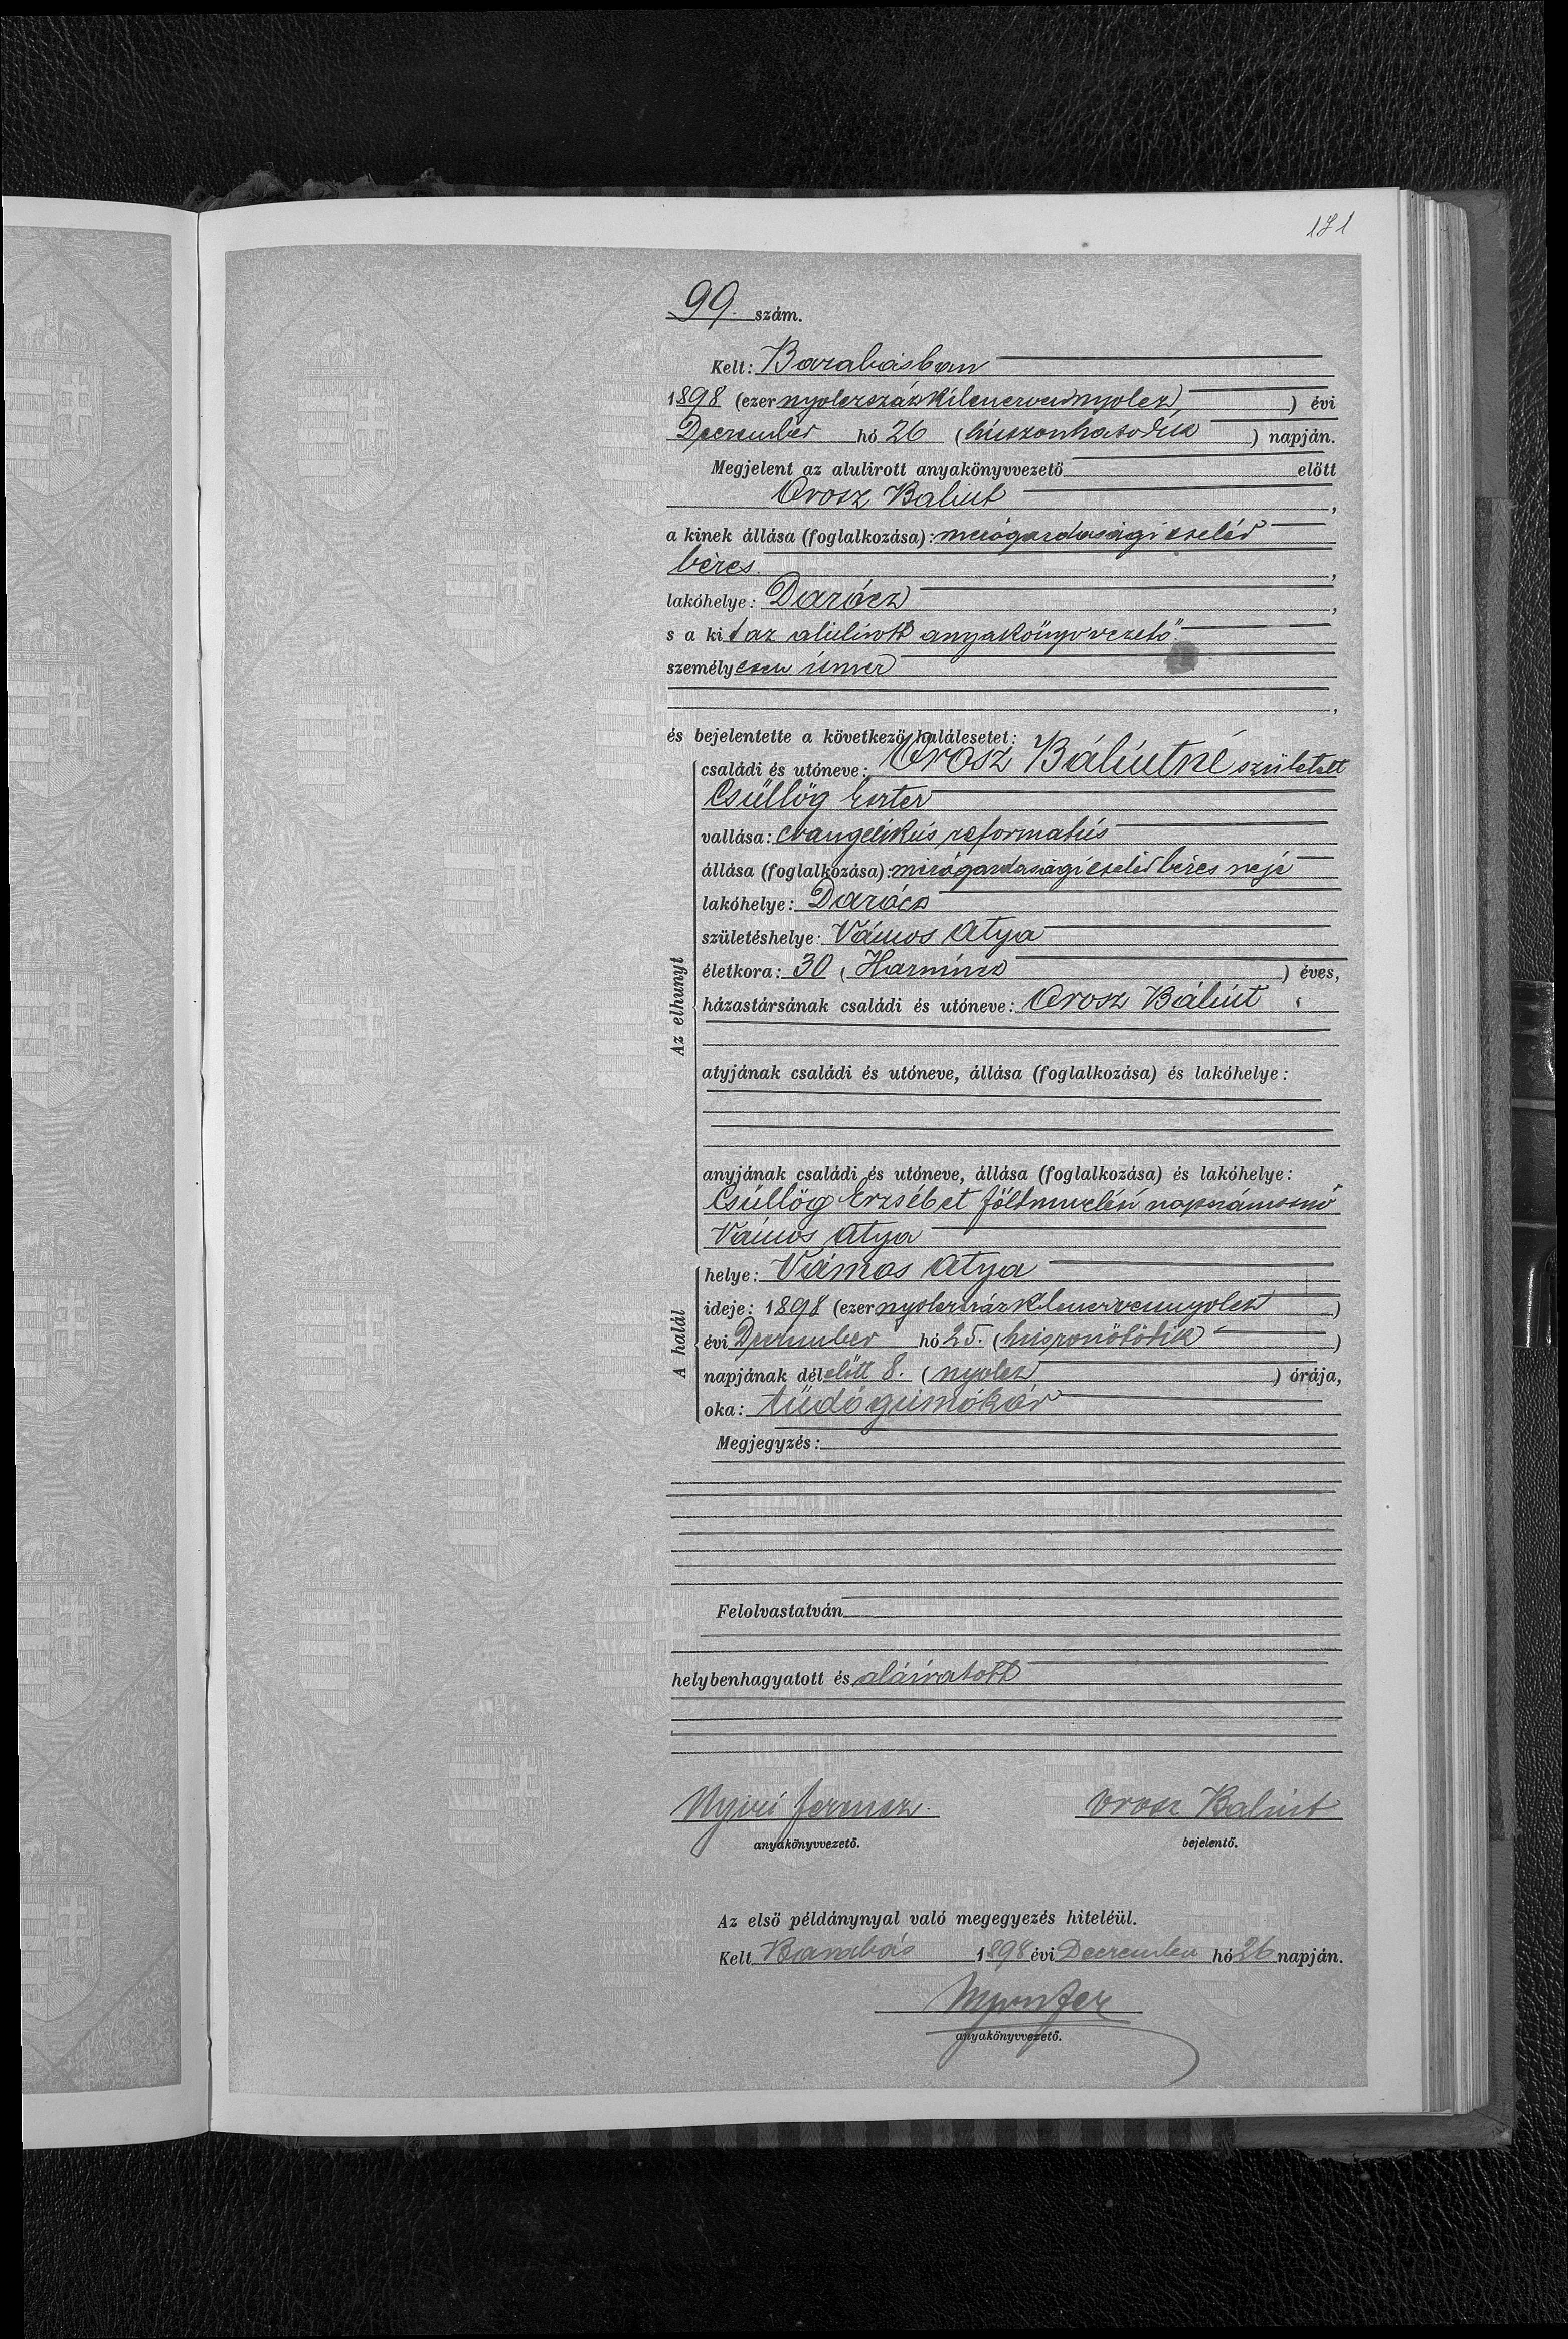 171
99. szám.
Kelt: Barabásban
1898 (ezer nyolczszáz kilenczvennyolcz) évi
Deczember hó 26 (húszonhatodik) napján.
Megjelent az alulirott anyakönyvvezető előtt
Orosz Balint,
a kinek állása (foglalkozása): mezőgazdasági cseléd
béres,
lakóhelye: Darócz,
s a kit az alulirott anyakönyvvezető
személyesen ismer
,
és bejelentette a következő halálesetet:
családi és utóneve: Orosz Bálintné született
Csüllög Eszter
vallása: evangelikus reformatus
állása (foglalkozása): mezőgazdasági cseléd béres neje
lakóhelye: Darócz
születéshelye: Vámos Atya
életkora: 30 (Harmincz) éves,
házastársának családi és utóneve: Orosz Bálint
Az elhunyt
atyjának családi és utóneve, állása (foglalkozása) és lakóhelye:
anyjának családi és utóneve, állása (foglalkozása) és lakóhelye:
Csüllög Erzsébet földmivelési napszámosnő
Vámos Atya
helye: Vámos Atya
ideje: 1898 (ezer nyolczszáz kilenczvennyolcz)
évi Deczember hó 25. (huszonötödik)
A halál
napjának délelőtt 8. (nyolcz) órája,
oka: tüdőgümőkór
Megjegyzés:
Felolvastatván
helybenhagyatott és aláiratott
Nyiri Ferencz. Orosz Balint
anyakönyvvezető. bejelentő.
Az első példánynyal való megegyezés hiteléül.
Kelt Barabás 1898 évi Deczember hó 26 napján.
anyakönyvvezető.